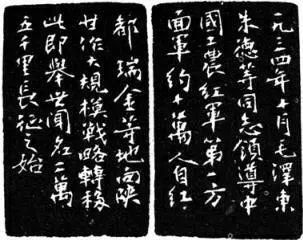 一九三四年十月毛澤東
朱德等同志領導中
國工農紅軍第一方
面軍約十萬人自紅
都瑞金等地向陝
甘作大規模戰略轉移
此即舉世聞名二萬
五千里長征之始